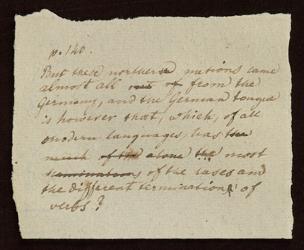 p. 140.
But these northern nations came
almost all out of from the
Germans, and the German tongue
is however that, which, of all
modern languages, has the
much of the alone the most
terminations of the cases and
the different terminations of
verbs?